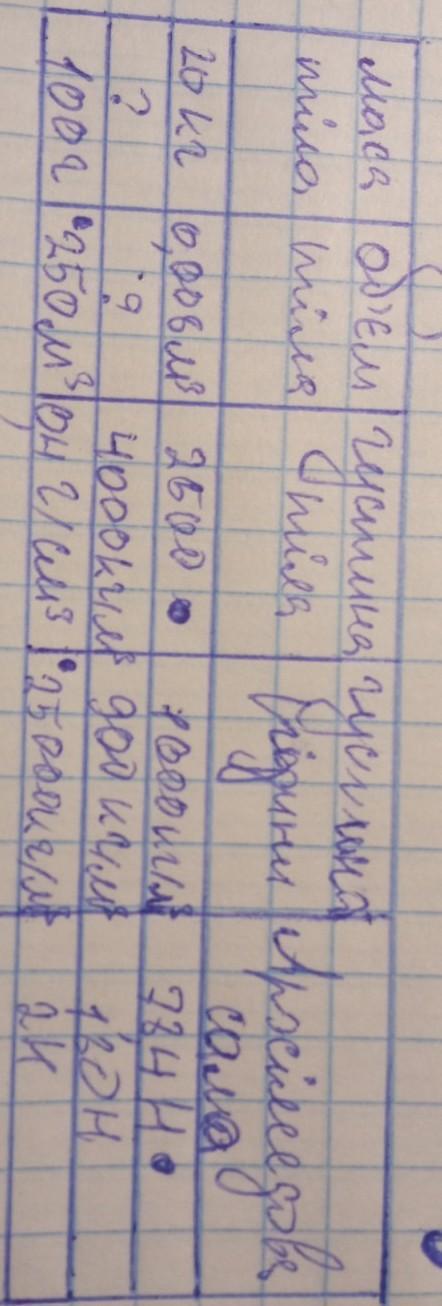 маса тіла | обʼєм тіла | густина тіла | густина рідини | Архімедова сила
20 кг | 0,008 м³ | 2500 | 1000 кг/м³ | 784 Н
? | ? | 400 кг/м³ | 900 кг/м³ | 180 Н
100 г | 250 м³ | 0,4 г/см³ | 25000 кг/м³ | 2Н